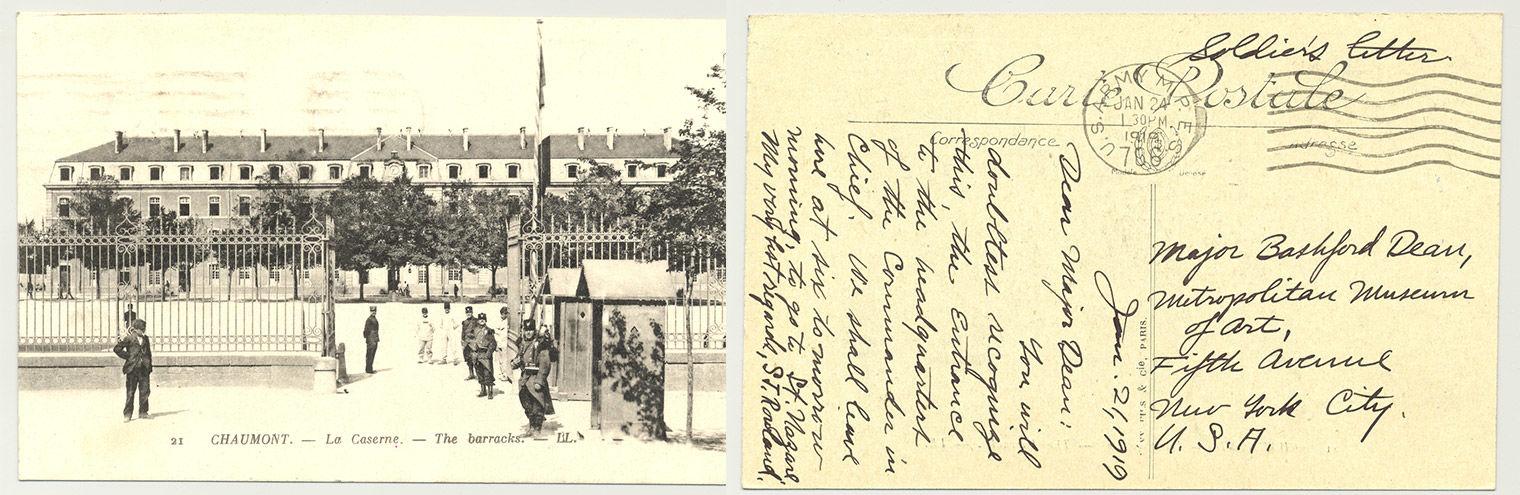 21 CHAUMONT. — La Caserne. — The barracks. — LL.
Soldier's letter
Carte Postale
U.S. ARMY M.P.E.S.
JAN 24
1 30PM
1919
Correspondance
Adresse
Jan. 21, 1919
Dear Major Dean:
You will
doubtless recognize
this, the Entrance
to the headquarters
of the Commander in
Chief. We shall leave
here at six to morrow
morning, to go to St. Nazare
My very best regards, S.F. Rowland.
Major Bashford Dean,
Metropolitan Museum
of Art,
Fifth Avenue
New York City.
U. S. A.
& Cie, PARIS.